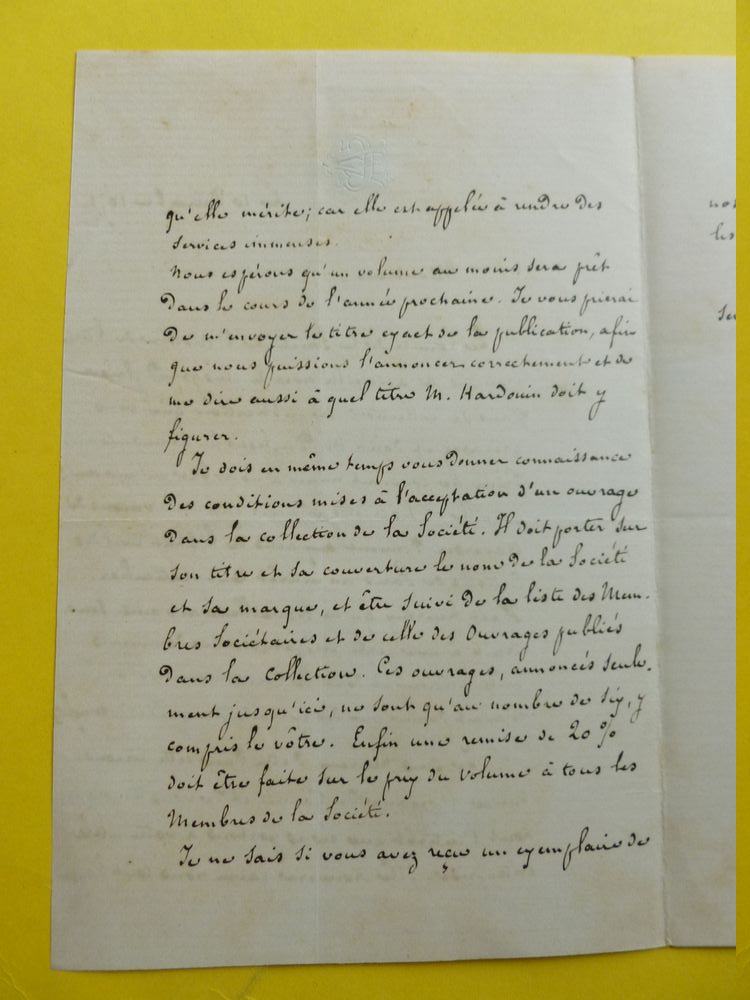 qu'elle mérite; car elle est appelée à rendre des
services immenses.
Nous espérons qu'un volume au moins sera prêt
Dans le cours de l'année prochaine. Je vous prierai
De m'envoyer le titre exact de la publication, afin
que nous puissions l'annoncer correctement et de
me dire aussi à quel titre M. Hardouin doit y
figurer.
Je dois en même temps vous Donner connaissance
Des conditions mises à l'acceptation d'un ouvrage
Dans la collection de la Société. Il doit porter sur
son titre et sa couverture le nom de la Société
et sa marque, et être suivi de la liste des Mem-
bres Sociétaires et de celle des Ouvrages publiés
Dans la Collection. Ces ouvrages, annoncés seule-
ment jusqu'ici, ne sont qu'au nombre de six, y
compris le vôtre. Enfin une remise de 20 %
doit être faite sur le prix du Volume à tous les
Membres de la Société.
Je ne sais si vous avez reçu un exemplaire de
nos
les